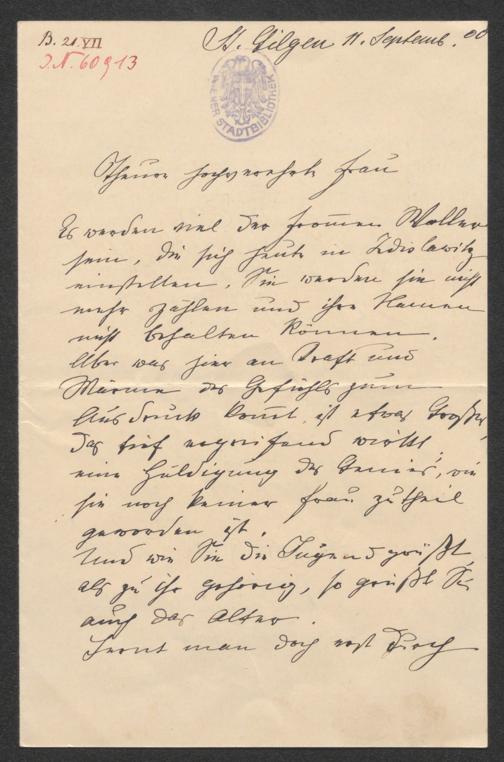 B. 21.VII
J.N. 60913
St. Gilgen 11. Septemb. 00
WIENER STADTBIBLIOTHEK
Theure hochverehrte Frau
Es werden viel der frommen Waller
sein, die sich heute in Zdislawitz
einstellen. Sie werden sie nicht
mehr zählen und ihre Namen
nicht behalten können.
Aber was hier an Kraft und
Wärme des Gefühls zum
Ausdruck kom̅t, ist etwas Großes,
das tief ergreifend wirkt,
eine Huldigung des Genies, wie
sie noch keiner Frau zutheil
geworden ist.
Und wie Sie die Jugend grüßt,
als zu ihr gehörig, so grüßt Sie
auch das Alter.
Lernt man doch erst durch